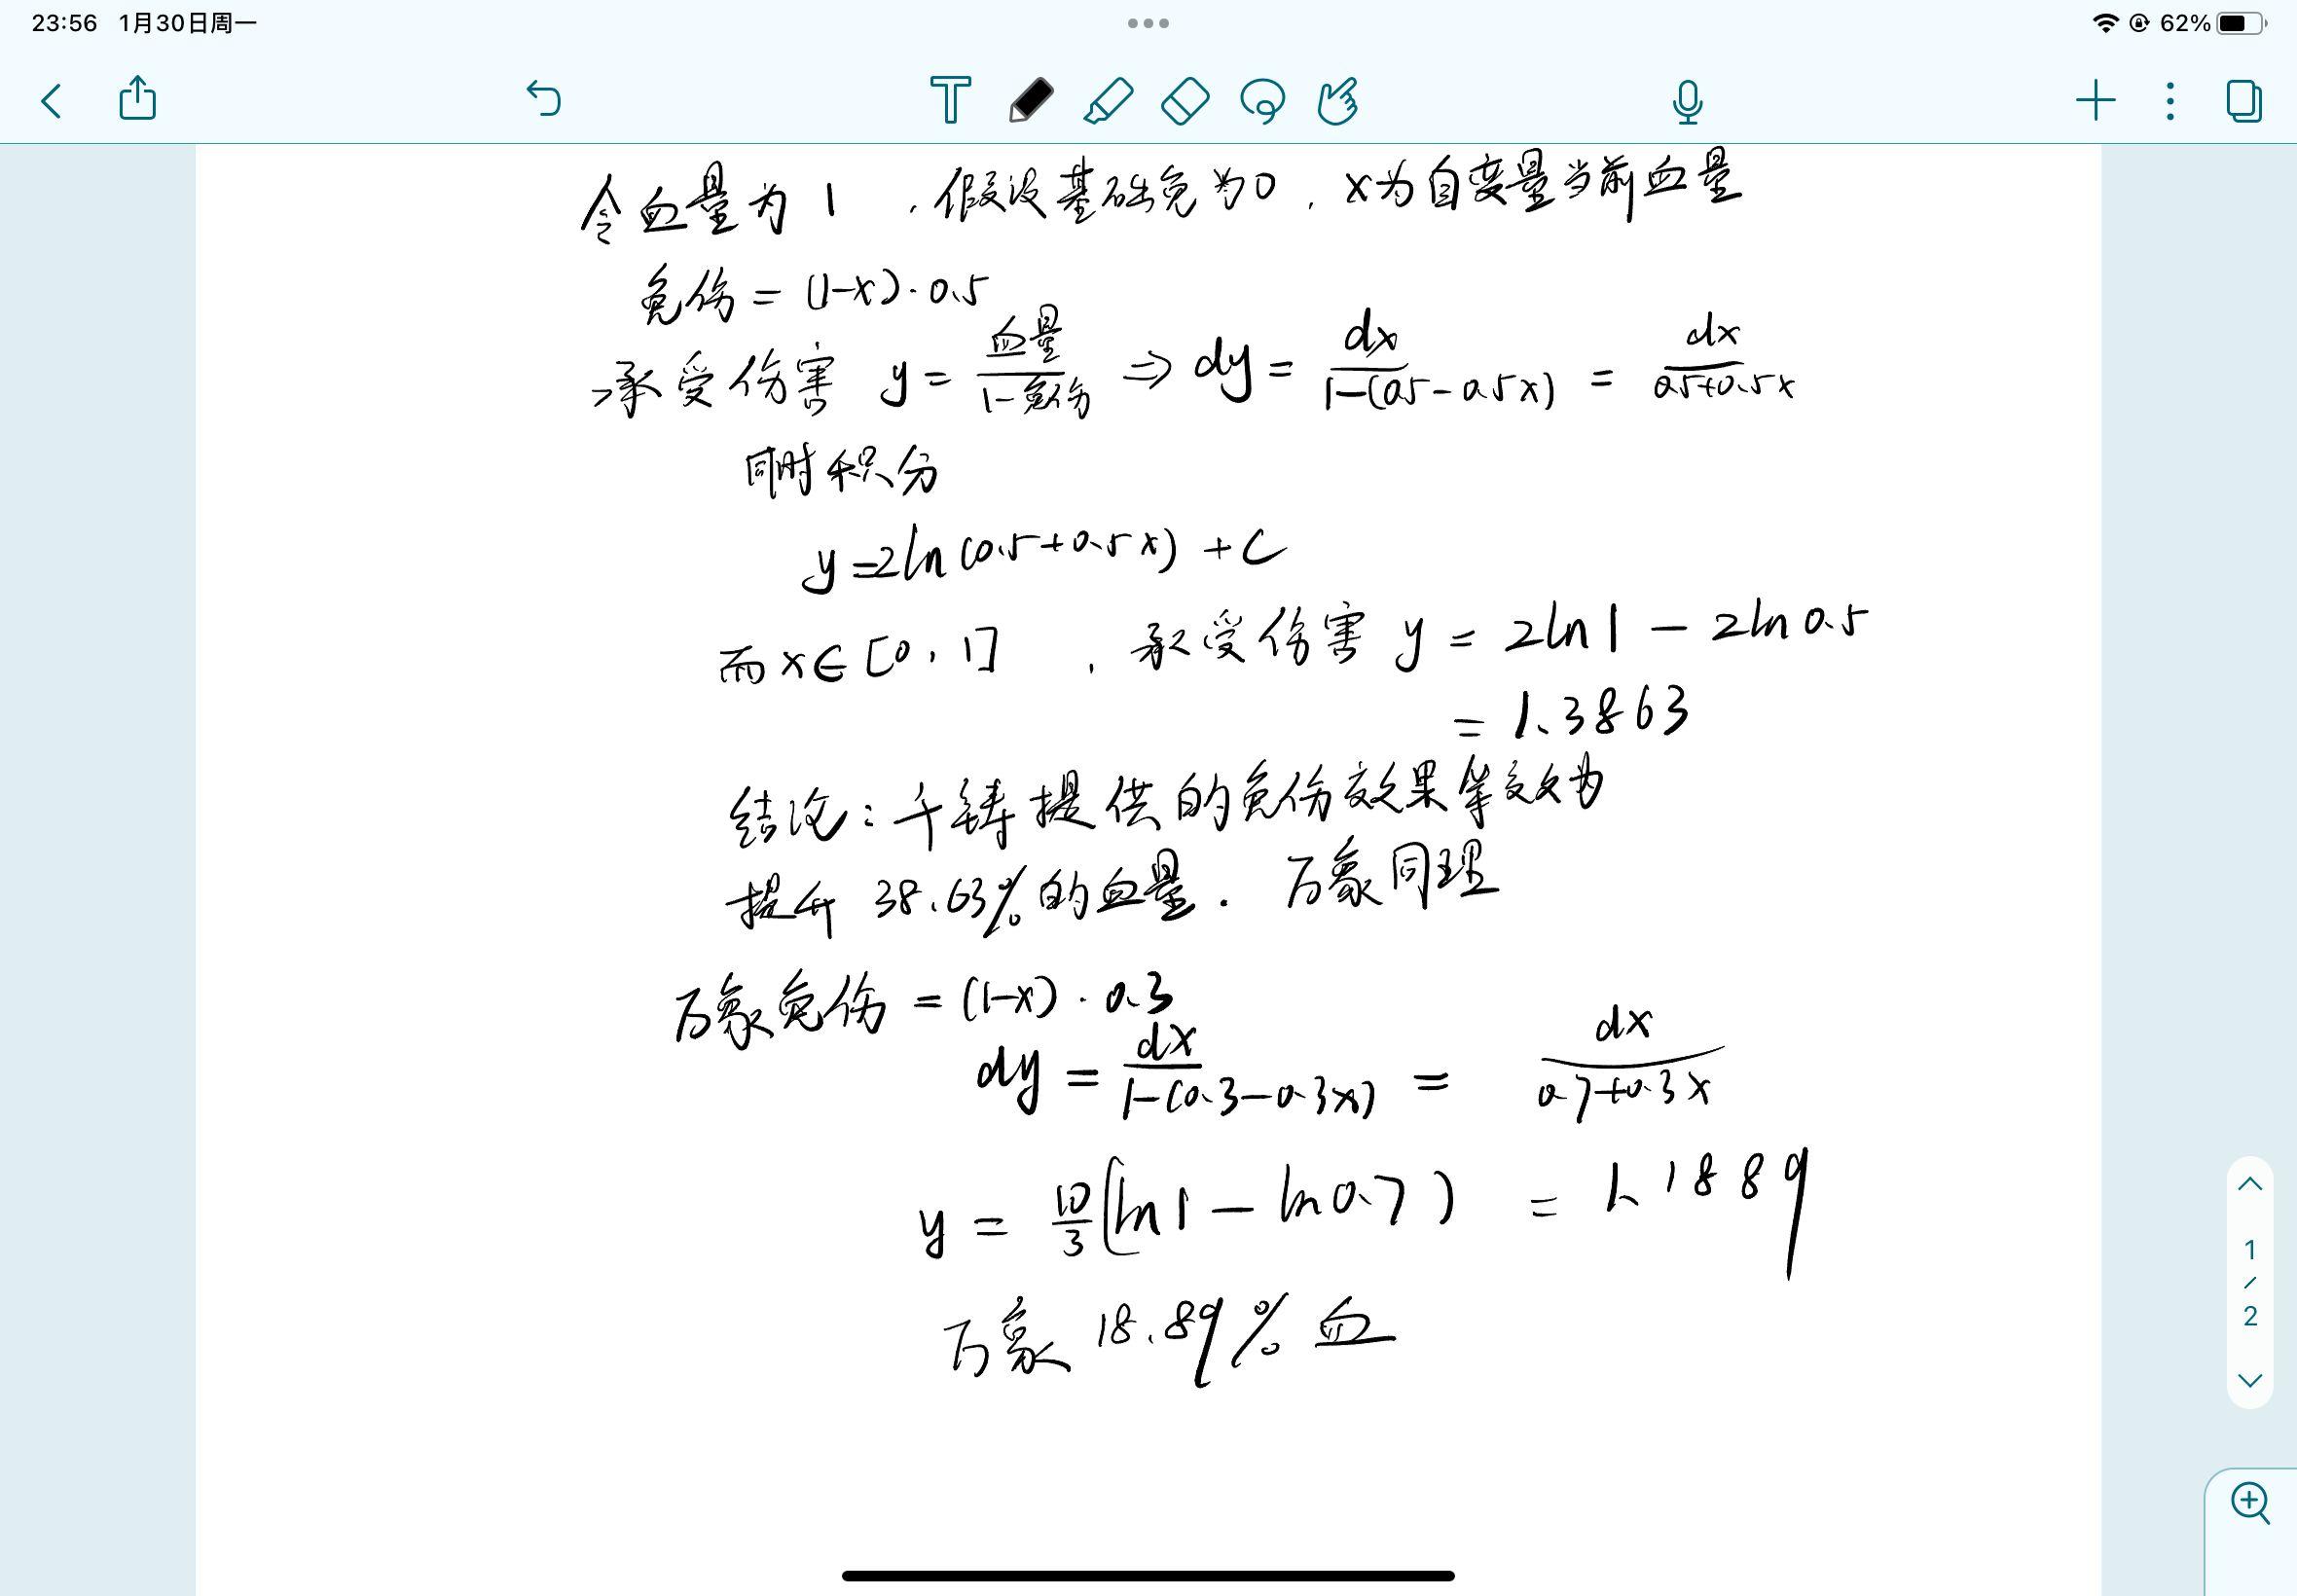 23:56 1月30日周一 62%
令血量为1，假设基础免为0，x为自变量当前血量
免伤=(1-x)·0.5
承受伤害 y=血量/(1-免伤) ⇒ dy=dx/(1-(0.5-0.5x))=dx/(0.5+0.5x)
同时积分
y=2ln(0.5+0.5x)+C
而x∈[0,1]，承受伤害 y=2ln1-2ln0.5
=1.3863
结论：千铸提供的免伤效果等效为
提升38.63%的血量. 万象同理
万象免伤=(1-x)·0.3
dy=dx/(1-(0.3-0.3x))=dx/(0.7+0.3x)
y=10/3(ln1-ln0.7)=1.1889
万象18.89%血
1
/
2